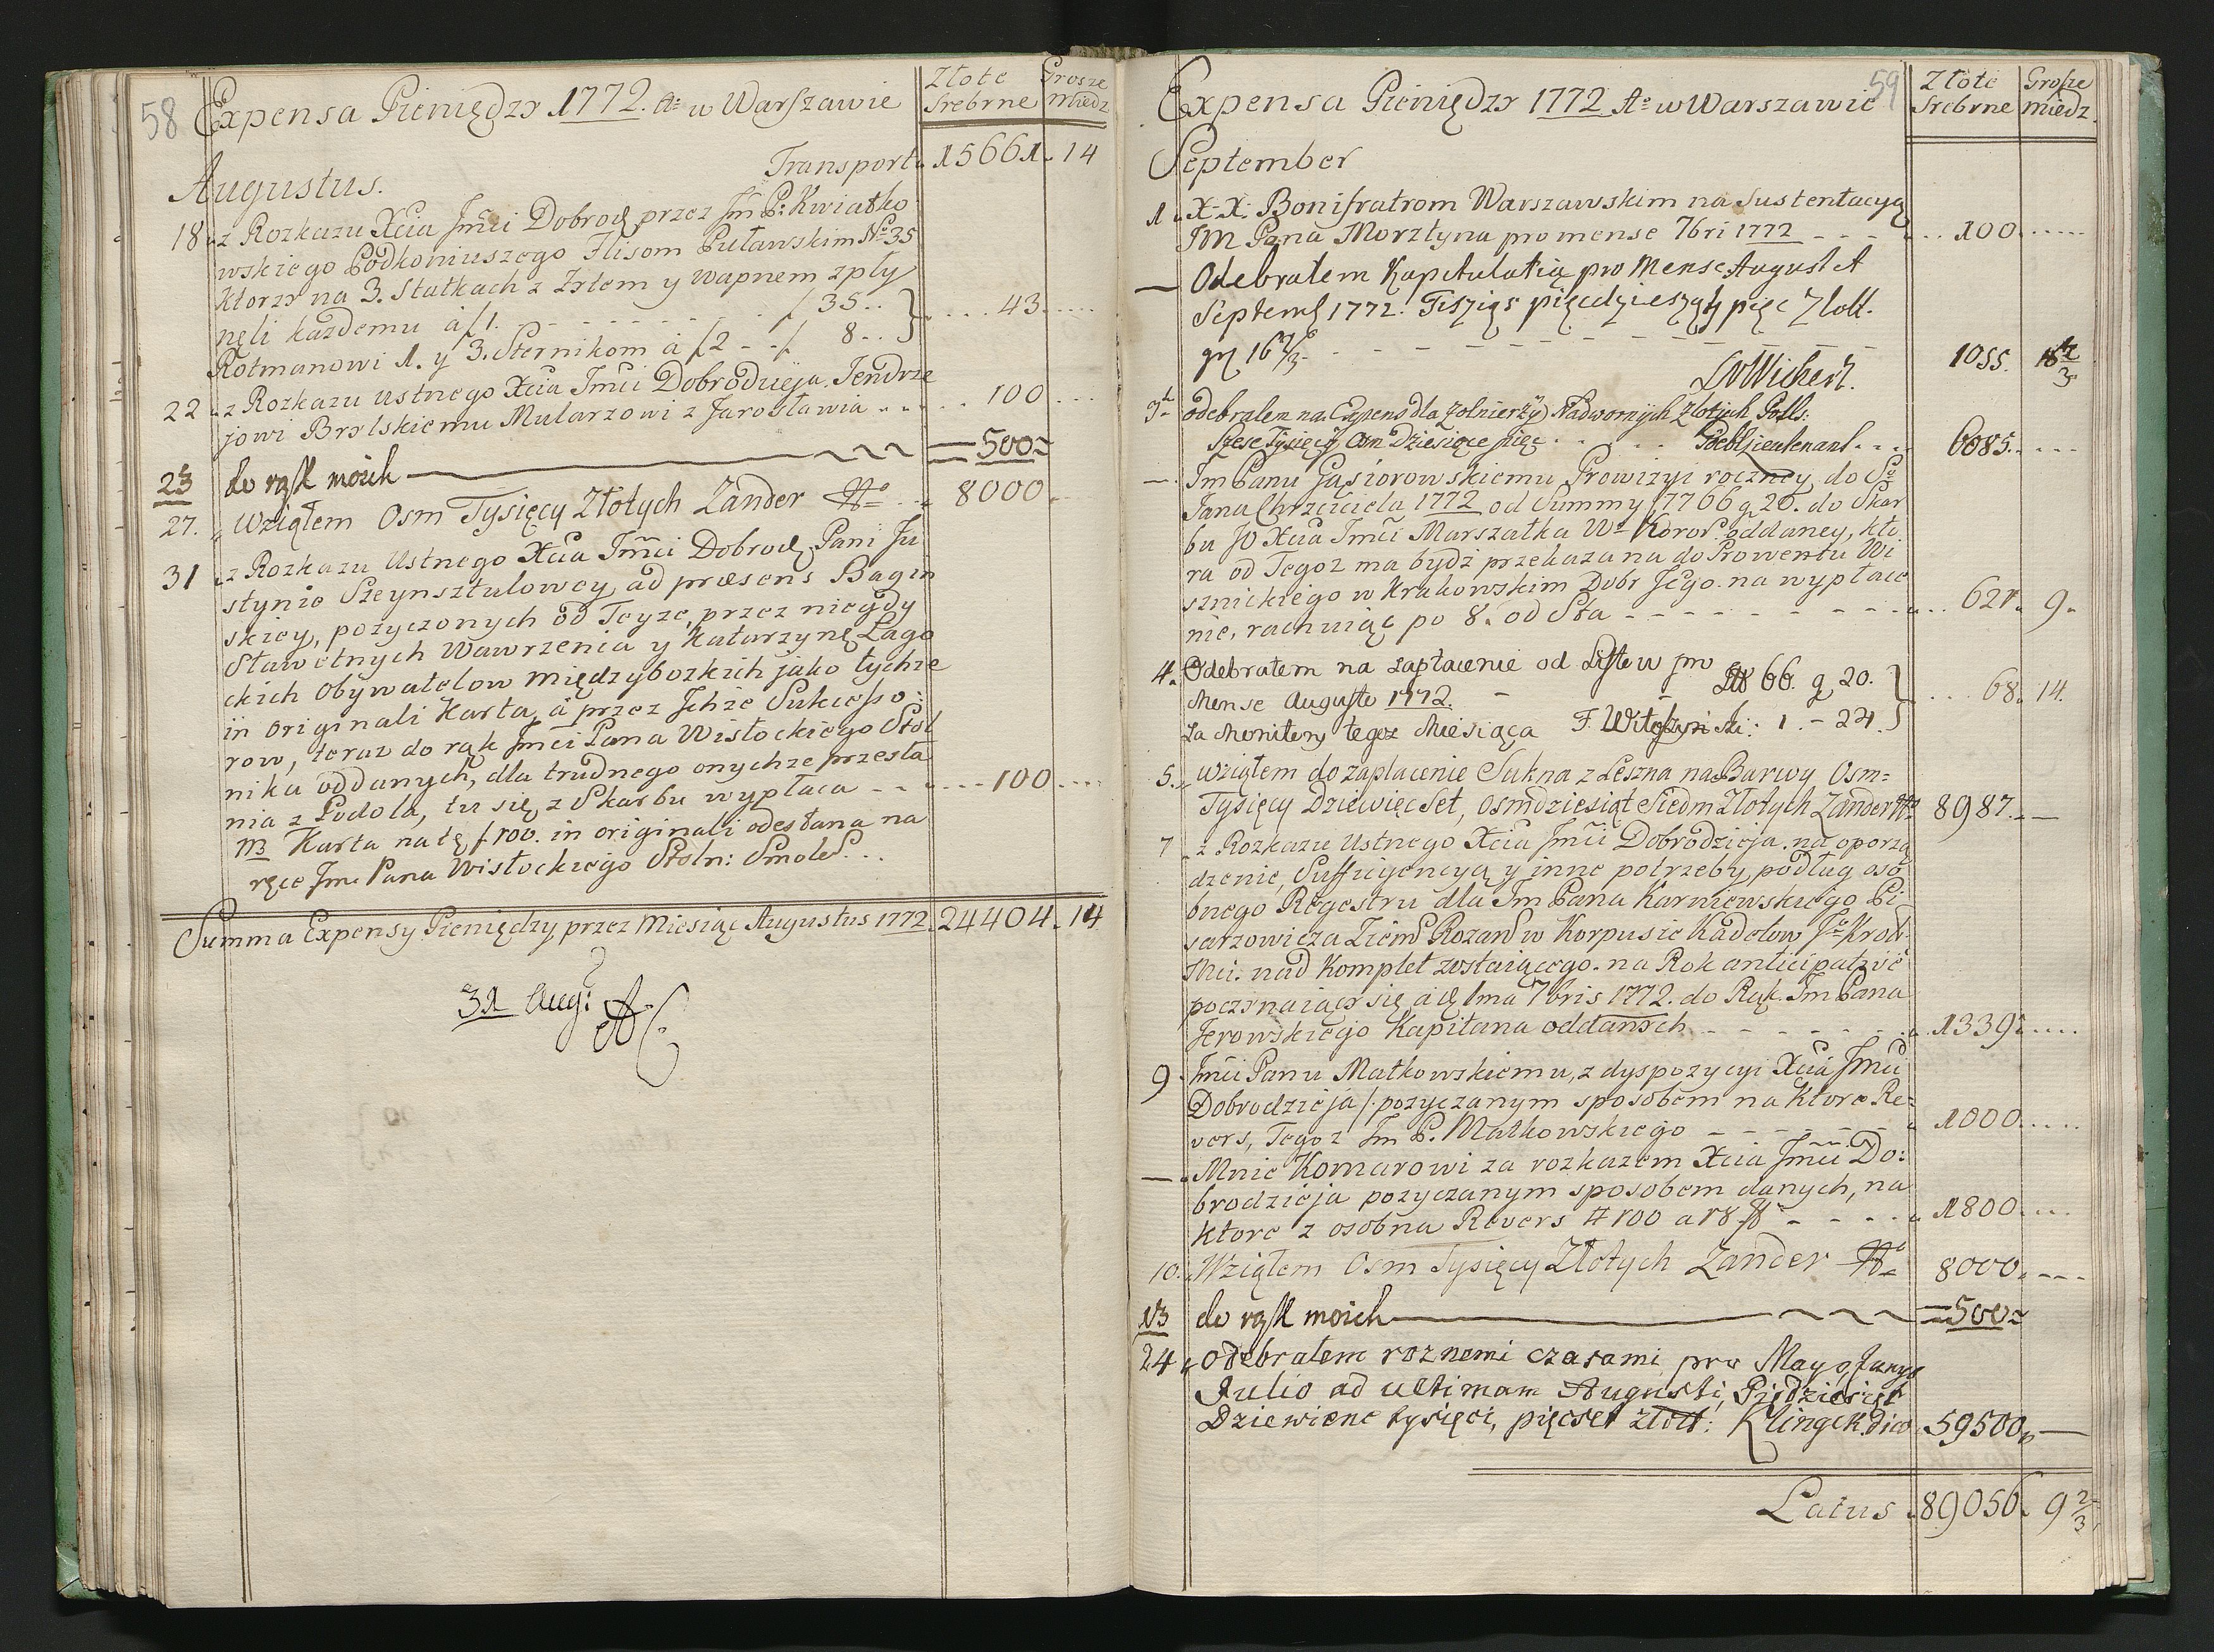 58
Expensa Pieniędzy 1772. Aº w Warszawie
Złote Srebrne
Grosze Miedz.
Augustus.
Transport. 15661. 14
18. z Rozkazu Xcia Jmci Dobrod. przez Jm P: Kwiatko
wskiego Podkoniuszego Flisom Puławskim Nº 35
Ktorzy na 3. Statkach z Zytem y Wapnem zpły
neli każdemu à f 1. - - - f 35.. 43.
Rotmanowi 1. y 3. Sternikom à f 2 - - f 8..
22. z Rozkazu ustnego Xcia Jmci Dobrodzieja Jendrze
jowi Brylskiemu Mularzowi z Jarosławia . . . 100 . . .
23 do rąk moich 500
27. Wziąłem Osm Tysięcy Złotych Zander 8000
31. z Rozkazu Ustnego Xcia Jmci Dobrod. Pani Ju
stynie Szeynsztulowey, ad præsens Bagin
skiey, pożyczonych od Teyze, przez niegdy
Sławetnych Wawrzenca y Katarzynę Łago
ckich Obywatelow Międzybozkich jako tychże
in originali Karta, à przez Jchże Sukcesso
row, teraz do rąk Jmci Pana Wisłockiego Stol
nika oddanych, dla trudnego onychze przesła
nia z Podola, tu się z Skarbu wypłaca - - 100. . . .
NB Karta na tę f 100. in originali odesłana na
ręce Jm. Pana Wisłockiego Stoln: Smol. . .
Summa Expensy Pieniędzy przez Miesiąc Augustus 1772. 24404. 14
31 Aug:
59
Expensa Pieniędzy 1772 Aº w Warszawie
Złote Srebrne
Grosze miedz.
September
1. X. X. Bonifratrom Warszawskim na Sustentacyą
JM Pana Morztyna pro mense 7bri 1772 - - - - 100. . . . .
— Odebrałem Kapitulatią pro Mense August et
Septemb 1772. Tisziąs pięcdzieszątj pięc Zlott.
gr 16 2/3 - - - - - - 1055. 16 2/3
Wichert.
3. odebralem na Expens dla żolnierzÿ Nadwornÿch zlotÿch Poll:
Szesc Tysięcÿ Osm Dziesiąt pięc . . . Lieutenant . . . 6085. . . .
— Jm Panu Gąsiorowskiemu Prowizyi roczney, do Sº
Jana Chrzciciela 1772 od Summy f 7766 g 20. do Skar
bu JO Xcia Jmci Marszałka Wº Koron. oddaney, kto
ra od Tegoz ma bydź przekazana do Prowentu Wi
sznickiego w Krakowskim Dobr Jego. na wypłace
nie, rachuiąc po 8. od Sta - - - - 621. 9.
4. Odebrałem na zapłacenie od Listow pro
Mense Augusto 1772. - - 66. g 20. 68. 14.
Za Monitory tegoz Miesiąca F. Witoszyński: 1. - 24.
5. wziąłem do zapłacenie Sukna z Leszna na Barwy Osm=
Tysięcy Dziewięcset, osmdziesiąt Siedm Złotych Zander 8987. —
7. z Rozkazu Ustnego Xcia Jmci Dobrodzieja. na oporzą
dzenie, Sufficyencyą y inne potrzeby, podług oso
bnego Regestru dla Jm Pana Karniewskiego Pi
sarzowicza Ziem. Rozan w Korpusie Kadetow Jº Krol.
Mci. nad Komplet zostaiącego. na Rok anticipative
poczynaiący się à d 1ma 7bris 1772. do Rąk Jm Pana
Jerowskiego Kapitana oddanych - - - - 1339. . . . .
9. Jmci Panu Małkowskiemu, z dyspozycyi Xcia Jmci
Dobrodzieja /: pożyczanym sposobem na Ktore Re=
vers, Tegoz Jm P. Małkowskiego - - - - 1000. . . . .
— Mnie Komarowi za rozkazem Xcia Jmci Do:
brodzieja pożyczanym sposobem danych, na
ktore z osobna Revers # 100 a 18 f - - - - 1800. . . .
10. Wziąłem Osm Tysięcy Złotych Zander 8000. - - -
13 do rąk moich 500
24. odebrałem roznemi czasami pro Mayo, Junyo
Julio ad ultimam Augusti, Pięcdziesiąt
Dziewienc tysięci, pięcset złott: Klingek dico 59500. —
Latus. 89056. 9 2/3